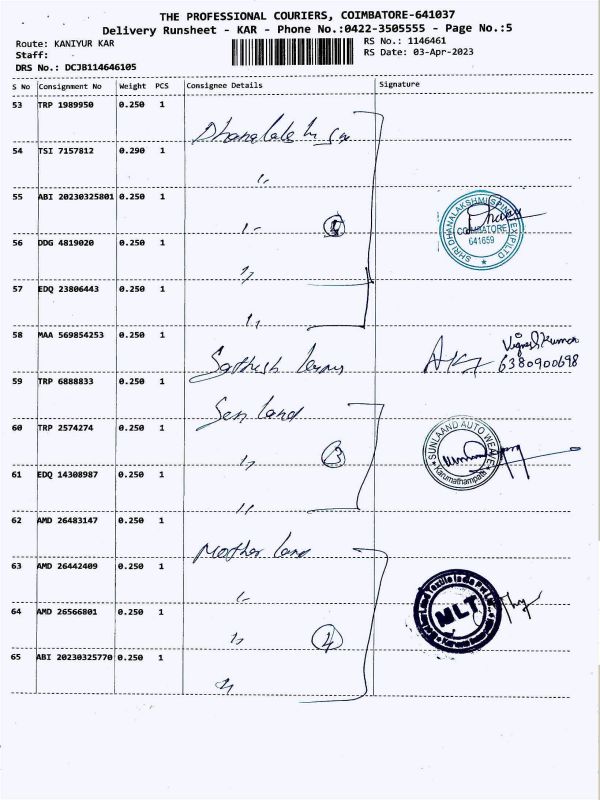 THE PROFESSIONAL COURIERS, COIMBATORE-641037
Delivery Runsheet - KAR - Phone No.:0422-3505555 - Page No.:5
Route: KANIYUR KAR
Staff:
DRS No.: DCJB114646105
RS No.: 1146461
RS Date: 03-Apr-2023
S No Consignment No Weight PCS Consignee Details Signature
53 TRP 1989950 0.250 1
54 TSI 7157812 0.290 1
55 ABI 20230325801 0.250 1
SHRI DHANALAKSHMI
COIMBATORE
641659
56 DDG 4819020 0.250 1
57 EDQ 23806443 0.250 1
58 MAA 569854253 0.250 1
Sathish
6380900698
59 TRP 6888833 0.250 1
Sen land
60 TRP 2574274 0.250 1
3
SUNLAAND AUTO WEAVE
Karumathampatti
61 EDQ 14308987 0.250 1
62 AMD 26483147 0.250 1
Mother land
63 AMD 26442409 0.250 1
64 AMD 26566801 0.250 1
4
MLT
65 ABI 20230325770 0.250 1